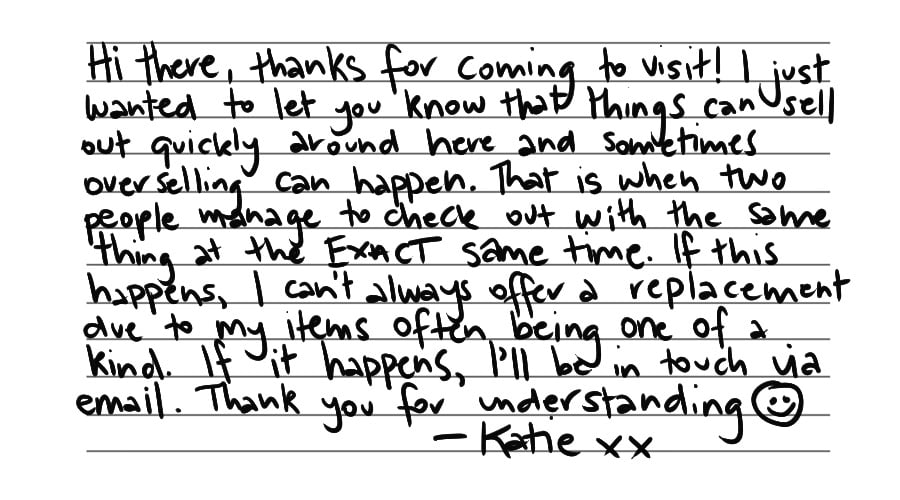 Hi there, thanks for coming to visit! I just
wanted to let you know that things can sell
out quickly around here and sometimes
overselling can happen. That is when two
people manage to check out with the same
thing at the EXACT same time. If this
happens, I can't always offer a replacement
due to my items often being one of a
kind. If it happens, I'll be in touch via
email. Thank you for understanding ☺
- Katie xx